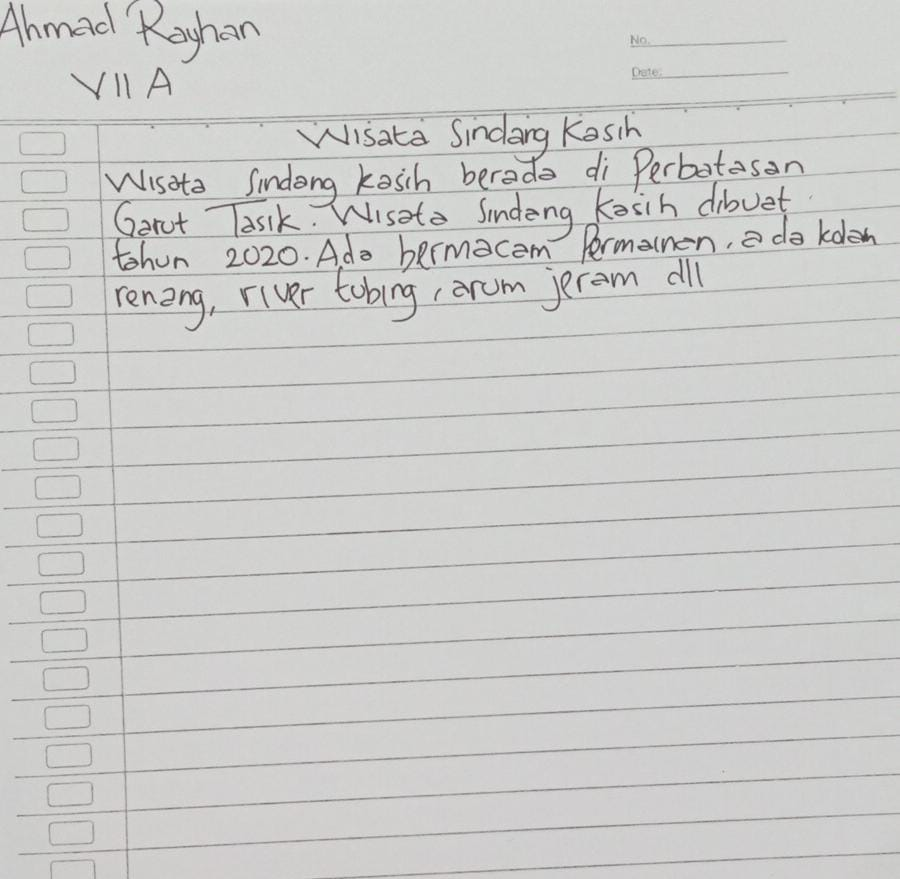 Ahmad Rayhan
VII A
No.
Date:
Wisata Sindang Kasih
Wisata Sindang kasih berada di Perbatasan
Garut Tasik. Wisata Sindang Kasih dibuat
tahun 2020. Ada bermacam Permainan, ada kolam
renang, river tubing, arum jeram dll